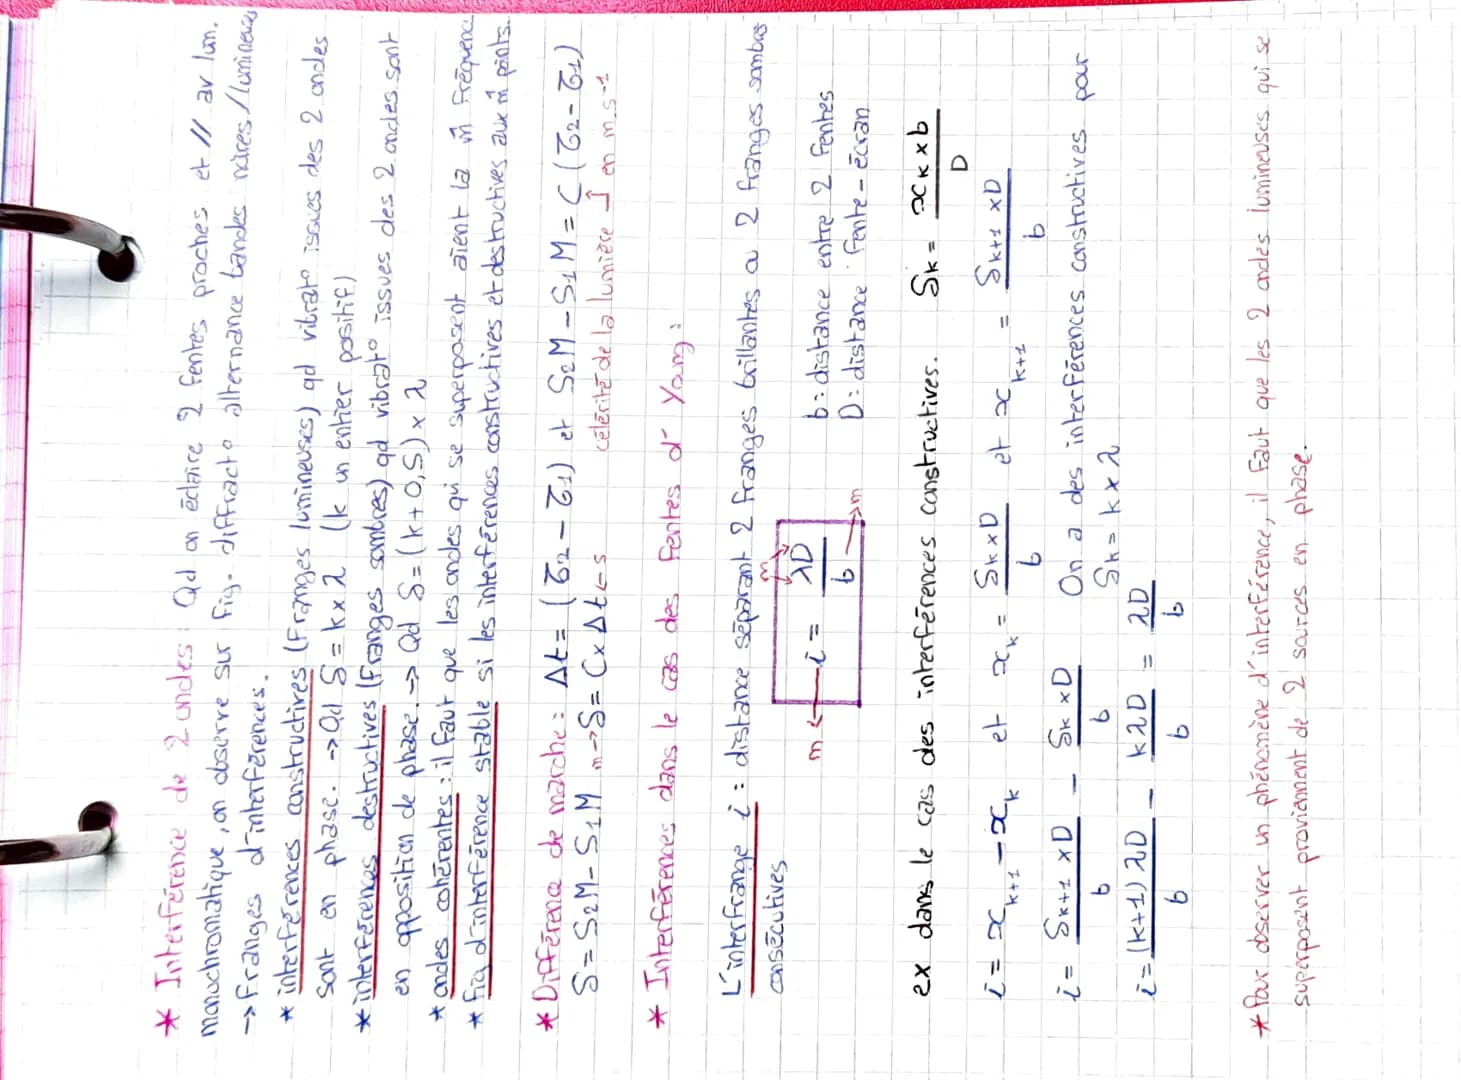 * Interférence de 2 ondes : Qd on éclaire 2 fentes proches et // av lum.
monochromatique, on observe sur fig. diffract° alternance bandes noires/lumineuses
→ franges d'interférences.
* interférences constructives (franges lumineuses) qd vibrat° issues des 2 ondes
sont en phase. → Qd δ = k × λ (k un entier positif)
* interférences destructives (franges sombres) qd vibrat° issues des 2 ondes sont
en opposition de phase. → Qd δ = (k + 0,5) × λ
* ondes cohérentes : il faut que les ondes qui se superposent aient la m̂ fréquence
* fig d'interférence stable si les interférences constructives et destructives aux m̂ points.
* Différence de marche : Δt = (τ2 − τ1) et S2M − S1M = C (τ2 − τ1)
δ = S2M − S1M m → δ = C × Δt ← s célérité de la lumière en m.s⁻¹
* Interférences dans le cas des fentes d' Young :
L'interfrange i : distance séparant 2 franges brillantes ou 2 franges sombres
consécutives
m ← i = λD / b
m
→ m
b : distance entre 2 fentes
D : distance fente - écran
ex dans le cas des interférences constructives. δk = xk × b / D
i = xk+1 − xk et xk = δk × D / b et xk+1 = δk+1 × D / b
i = δk+1 × D / b − δk × D / b On a des interférences constructives pour
δk = k × λ
i = (k+1) λD / b − kλD / b = λD / b
* Pour observer un phénomène d'interférence, il faut que les 2 ondes lumineuses qui se
superposent proviennent de 2 sources en phase.